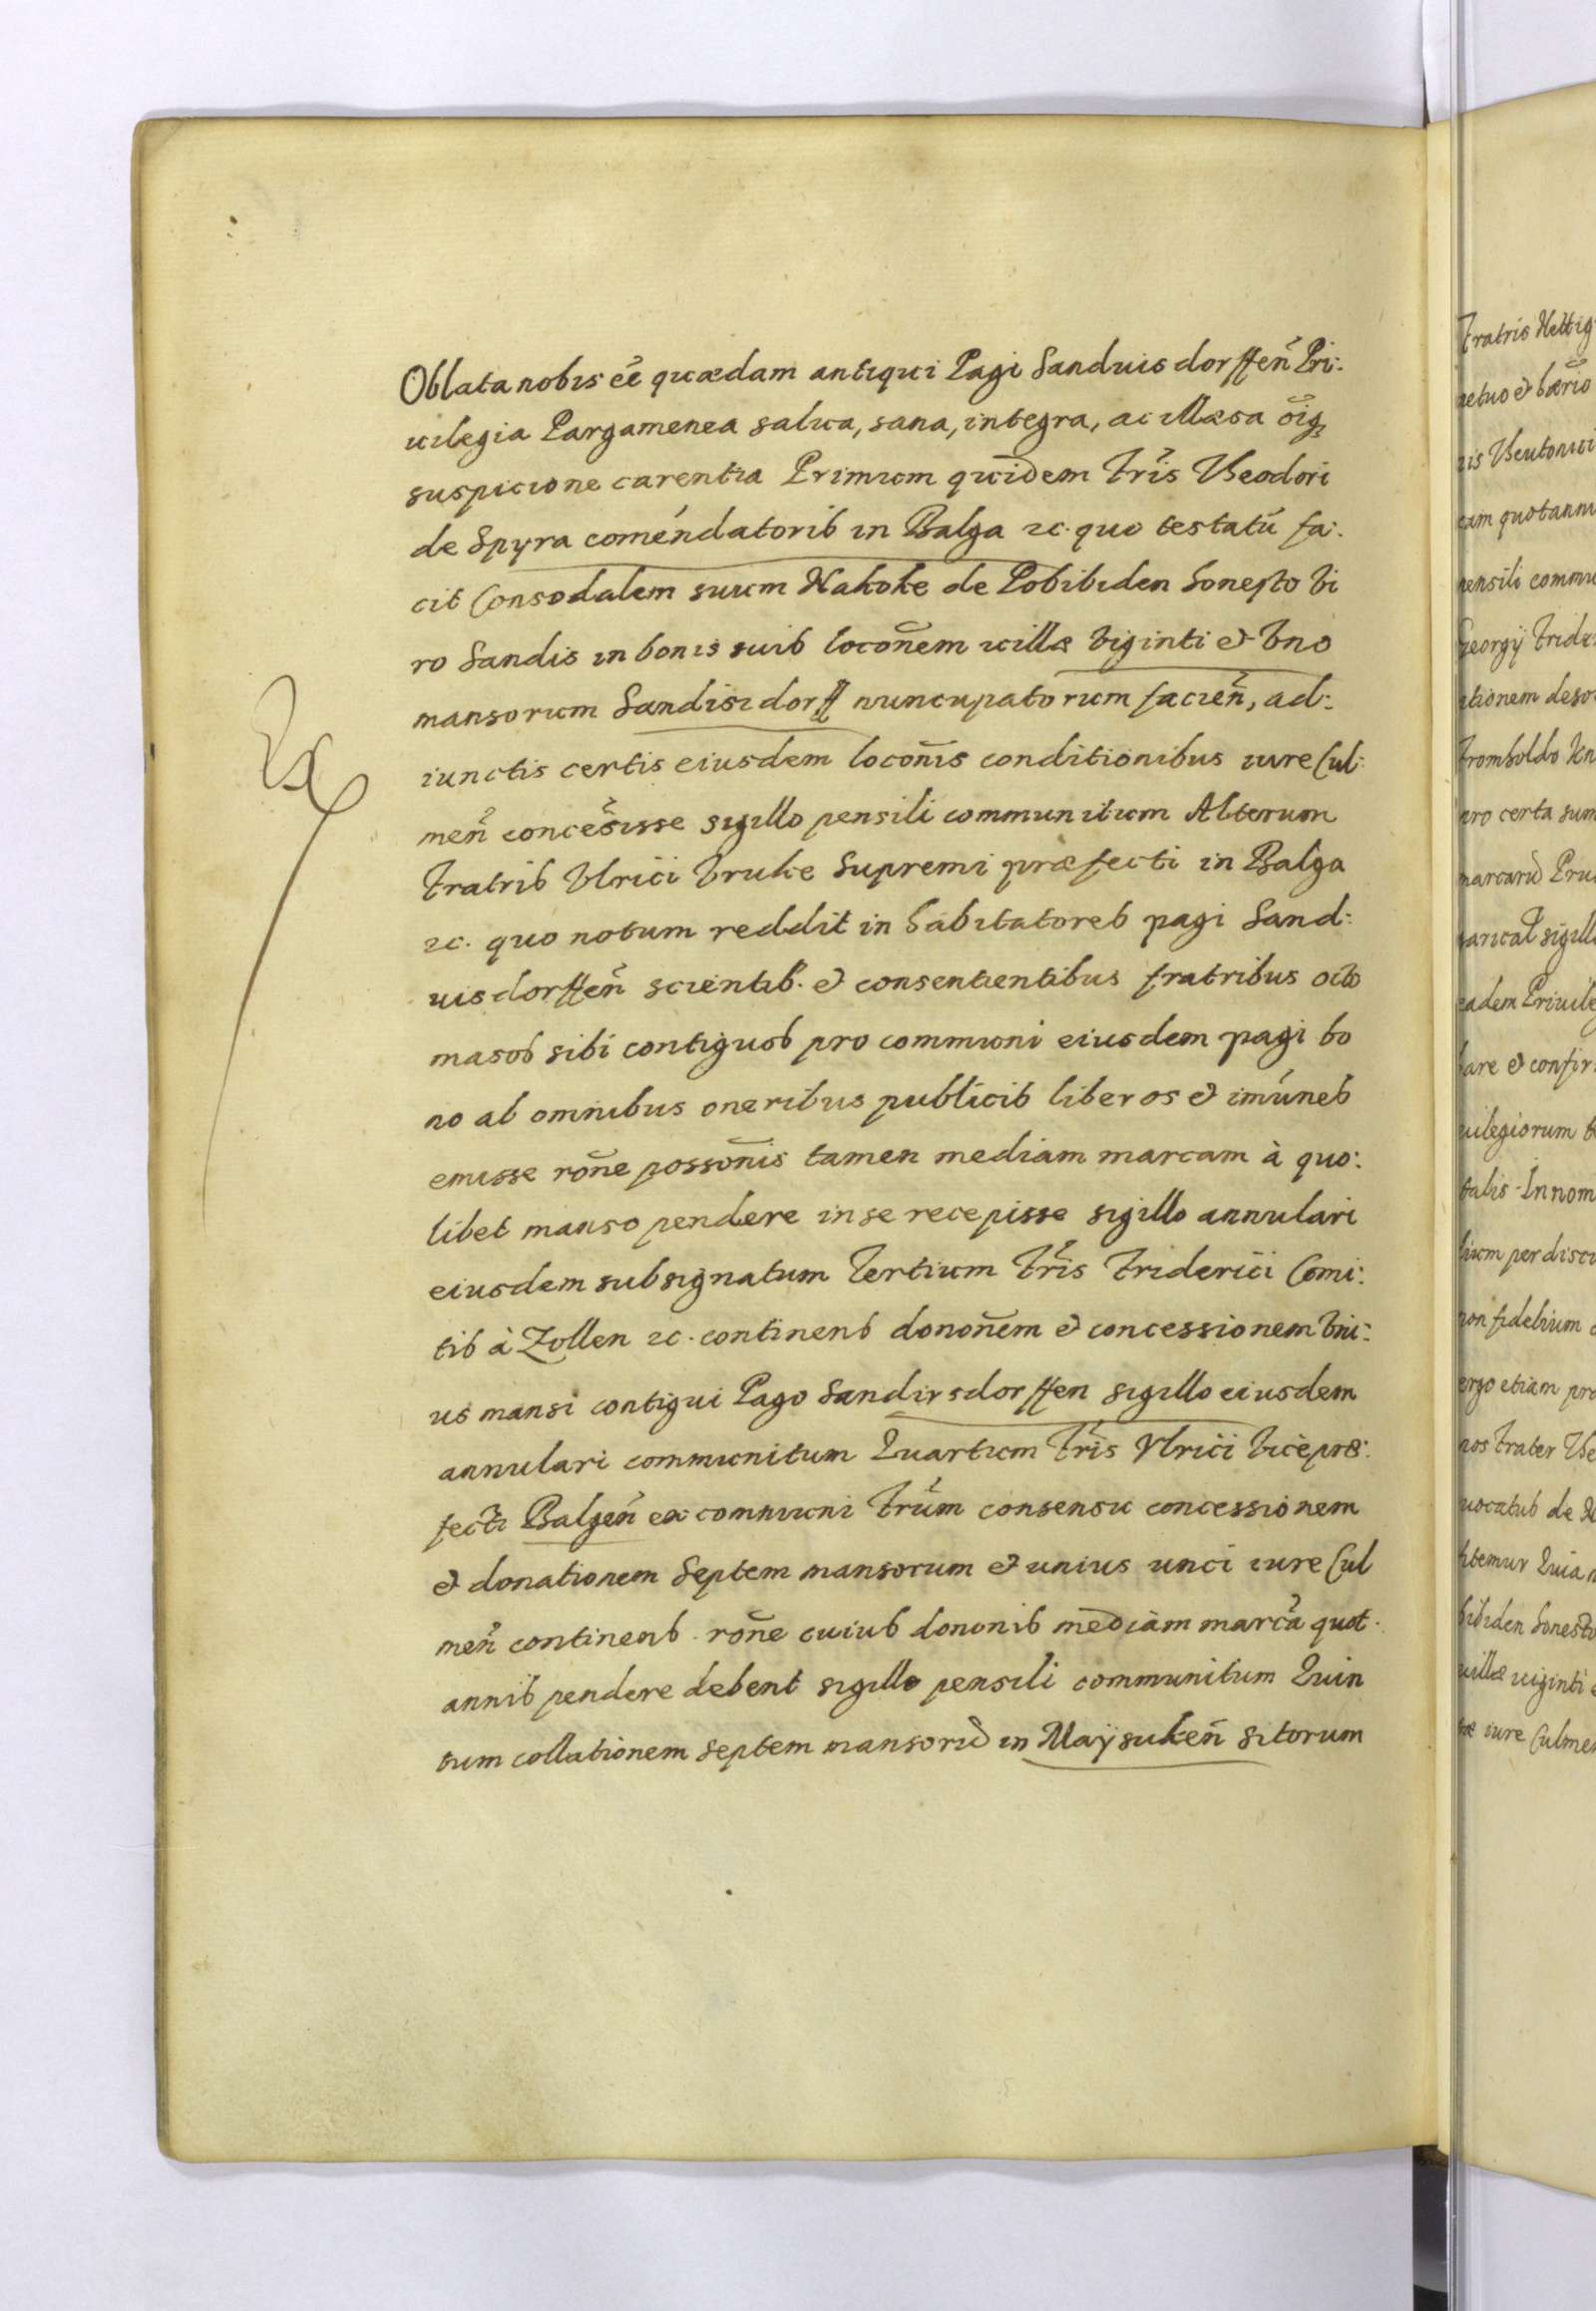 Oblata nobis eẽ quædam antiqui Pagi Sanduisdorffeñ Pri:
uilegia Pargamenea salua, sana, integra, ac illæsa õiq₃
suspicione carentia Primum quidem Fr̃is Theodori
de Spyra comẽndatoris in Balga ꝛc. quo testatũ fa:
cit Consodalem suum Nakoke de Pobibiden honesto Vi
ro Sandis in bonis suis locoñem uillæ Viginti & Vno
mansorum Sandisidorff nuncupatorum facieñ, ad:
iunctis certis eiusdem locoñis conditionibus iure Cul:
meñ concesisse sigillo pensili communitum Alterum
Fratris Vlrici Fruke Supremi præfecti in Balga
ꝛc. quo notum reddit inhabitatores pagi Sand:
uisdorffeñ scientib. & consentientibus fratribus octo
masos sibi contiguos pro communi eiusdem pagi bo
no ab omnibus oneribus publicis liberos & imũnes
emisse roñe possoñis tamen mediam marcam à quo:
libet manso pendere in se recepisse sigillo annulari
eiusdem subsignatum Tertium Fr̃is Friderici Comi:
tis à Zollen ꝛc. continens donoñem & concessionem Vni:
us mansi contigui Pago Sandirsdorffen sigillo eiusdem
annulari communitum Quartum Fr̃is Vlrici Vicepræ:
fecti Balgeñ ex communi Fr̃um consensu concessionem
& donationem Septem mansorum & unius unci iure Cul
meñ continens roñe cuius dononis mediam marcã quot:
annis pendere debent sigillo pensili communitum Quin
tum collationem septem mansorũ in Maÿsukeñ sitorum
Fratris
uis Theutonici
eam quotanni
pensili commu
Georgij Fride
pro certa sum
eadem Priuile
bare & confir
uilegiorum
talis In nom
non fidelium
ergo etiam pro
nos Frater The
uocatus de
bibiden honesto
uillæ uiginti
iure Culmen